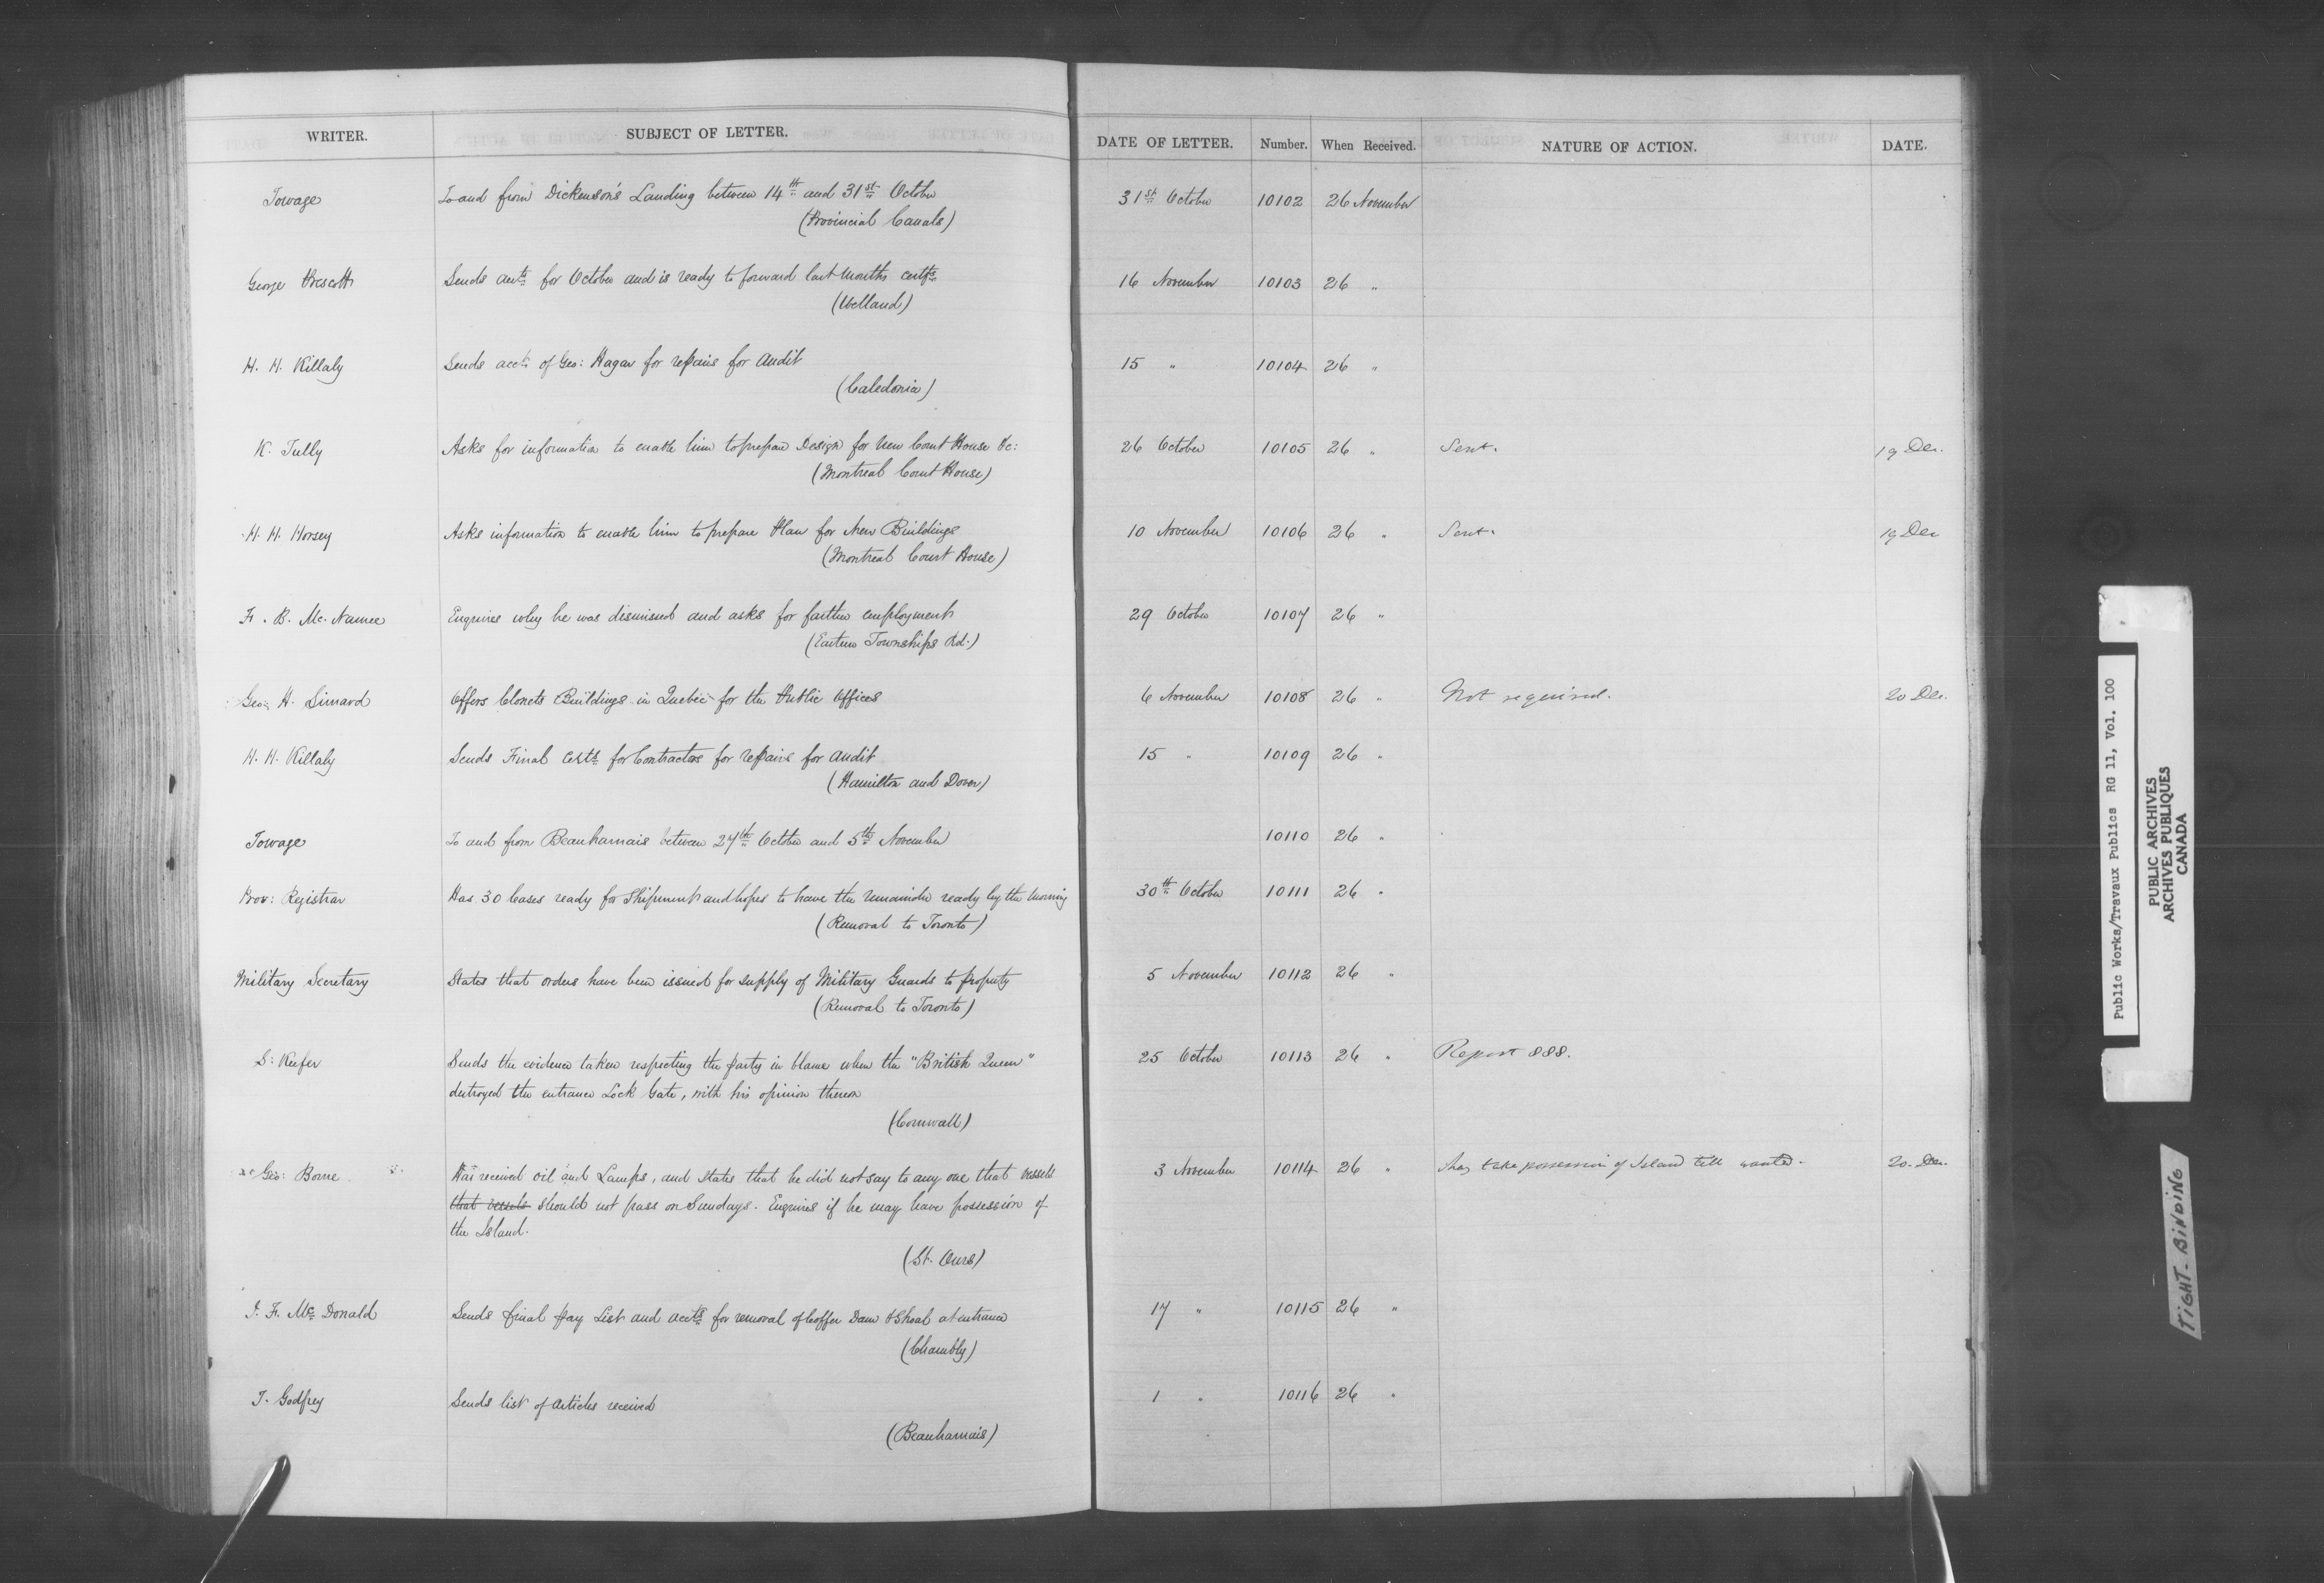 WRITER. SUBJECT OF LETTER. DATE OF LETTER. Number. When Received. NATURE OF ACTION. DATE.
Towage To and from Dickenson's Landing between 14th and 31st October 31st October 10102 26 November
(Provincial Canals)
George Prescott Sends accts for October and is ready to forward last months certfs 16 November 10103 26 "
(Welland)
H. H. Killaly Sends acct. of Geo: Hagar for repairs for Audit 15 " 10104 26 "
(Caledonia)
K. Tully Asks for information to enable him to prepare Design for New Court House &c: 26 October 10105 26 " Sent. 19 Dec.
(Montreal Court House)
H. H. Horsey Asks information to enable him to prepare Plan for New Buildings 10 November 10106 26 " Sent. 19 Dec
(Montreal Court House)
F. B. Mc. Namee Enquires why he was dismissed and asks for farther employment 29 October 10107 26 "
(Eastern Townships Rd.)
Geo: H. Simard Offers Clonets Buildings in Quebec for the Public Offices 6 November 10108 26 " Not required. 20 Dec.
H. H. Killaly Sends Final Certs for Contractors for repairs for audit 15 " 10109 26 "
(Hamilton and Dover)
Towage To and from Beauharnais between 27th October and 5th November 10110 26 "
Prov: Registrar Has 30 Cases ready for Shipment and hopes to have the remainder ready by the morning 30th October 10111 26 "
(Removal to Toronto)
Military Secretary States that orders have been issued for supply of Military Guards to property 5 November 10112 26 "
(Removal to Toronto)
S: Keefer Sends the evidence taken respecting the party in blame when the "British Queen" 25 October 10113 26 " Report 888.
destroyed the entrance Lock Gate, with his opinion thereon
(Cornwall)
Geo: Borne Has received oil and Lamps, and States that he did not say to any one that vessels 3 November 10114 26 " May take possession of Island till wanted. 20. Dec.
that vessels should not pass on Sundays. Enquires if he may have possession of
the Island.
(St. Ours)
J. F. Mc Donald Sends final Pay List and accts for removal of Coffer Dam & Shoal at entrance 17 " 10115 26 "
(Chambly)
T. Godfrey Sends list of Articles received 1 " 10116 26 "
(Beauharnais)
Public Works/Travaux Publics RG 11, Vol. 100
PUBLIC ARCHIVES
ARCHIVES PUBLIQUES
CANADA
TIGHT-BINDING